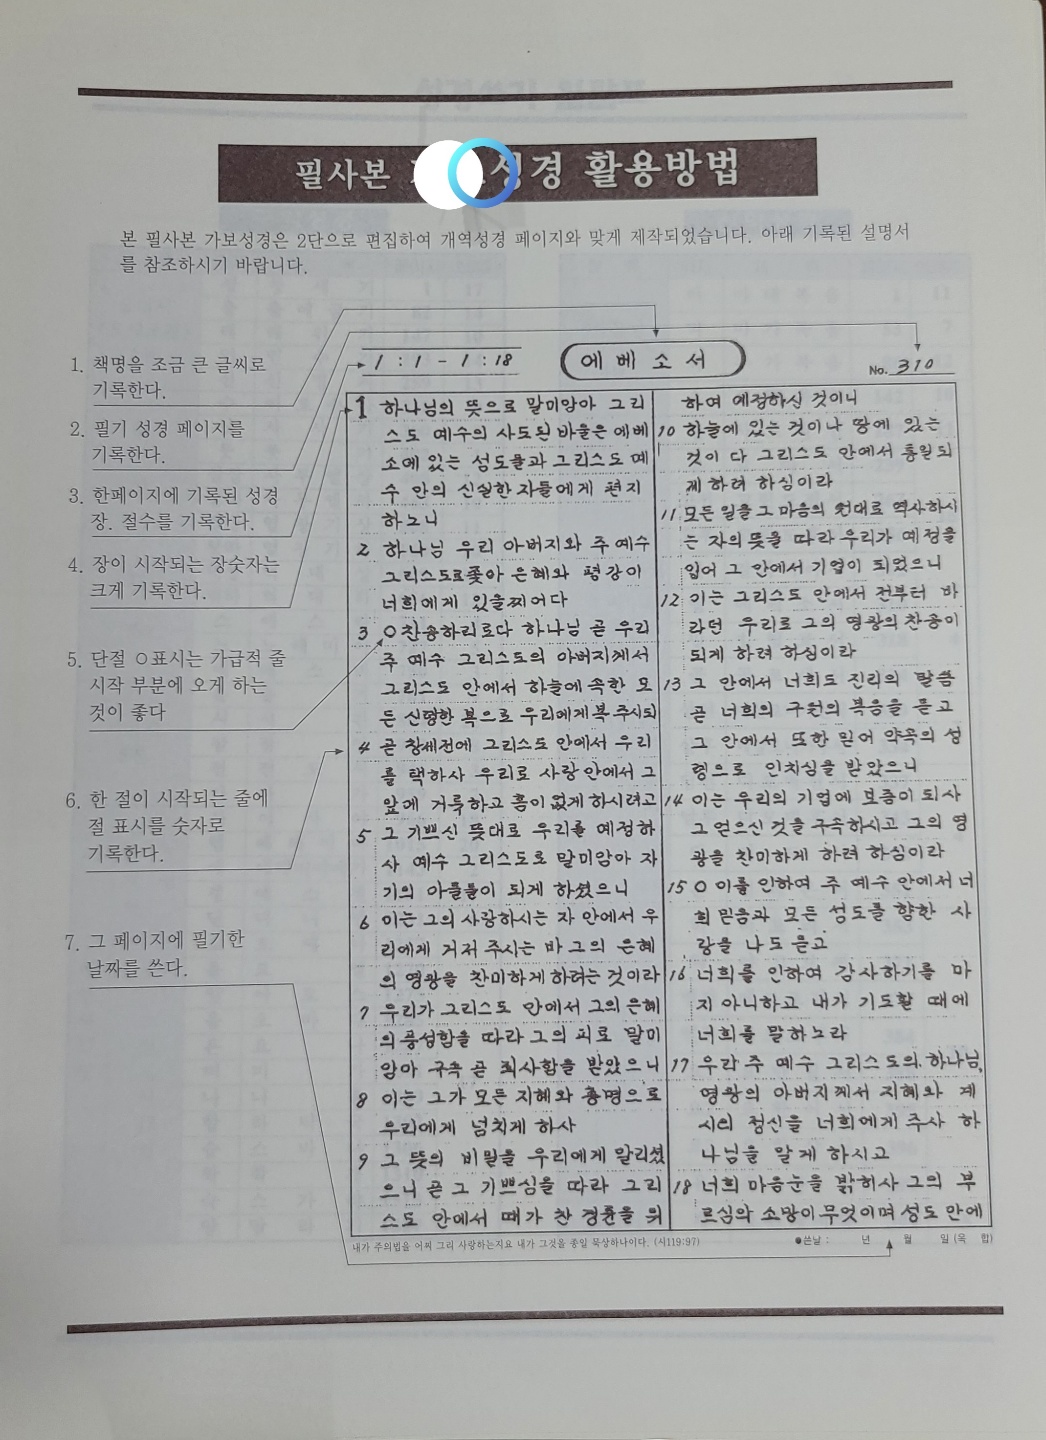 필사본 성경 활용방법
본 필사본 가보성경은 2단으로 편집하여 개역성경 페이지와 맞게 제작되었습니다. 아래 기록된 설명서
를 참조하시기 바랍니다.
1. 책명을 조금 큰 글씨로
기록한다.
2. 필기 성경 페이지를
기록한다.
3. 한페이지에 기록된 성경
장. 절수를 기록한다.
4. 장이 시작되는 장숫자는
크게 기록한다.
5. 단절 ㅇ표시는 가급적 줄
시작 부분에 오게 하는
것이 좋다
6. 한 절이 시작되는 줄에
절 표시를 숫자로
기록한다.
7. 그 페이지에 필기한
날짜를 쓴다.
1 : 1 - 1 : 18
에베소서
No. 310
1 하나님의 뜻으로 말미암아 그리
스도 예수의 사도된 바울은 에베
소에 있는 성도들과 그리스도 예
수 안의 신실한 자들에게 편지
하노니
2 하나님 우리 아버지와 주 예수
그리스도로좇아 은혜와 평강이
너희에게 있을찌어다
3 ㅇ찬송하리로다 하나님 곧 우리
주 예수 그리스도의 아버지께서
그리스도 안에서 하늘에 속한 모
든 신령한 복으로 우리에게복 주시되
4 곧 창세전에 그리스도 안에서 우리
를 택하사 우리로 사랑 안에서 그
앞에 거룩하고 흠이 없게 하시려고
5 그 기쁘신 뜻대로 우리를 예정하
사 예수 그리스도로 말미암아 자
기의 아들들이 되게 하셨으니
6 이는 그의 사랑하시는 자 안에서 우
리에게 거저 주시는 바 그의 은혜
의 영광을 찬미하게 하려는 것이라
7 우리가 그리스도 안에서 그의 은혜
의 풍성함을 따라 그의 피로 말미
암아 구속 곧 죄사함을 받았으니
8 이는 그가 모든 지혜와 총명으로
우리에게 넘치게 하사
9 그 뜻의 비밀을 우리에게 알리셨
으니 곧 그 기쁘심을 따라 그리
스도 안에서 때가 찬 경륜을 위
하여 예정하신 것이니
10 하늘에 있는 것이나 땅에 있는
것이 다 그리스도 안에서 통일되
게 하려 하심이라
11 모든 일을 그 마음의 원대로 역사하시
는 자의 뜻을 따라 우리가 예정을
입어 그 안에서 기업이 되었으니
12 이는 그리스도 안에서 전부터 바
라던 우리로 그의 영광의 찬송이
되게 하려 하심이라
13 그 안에서 너희도 진리의 말씀
곧 너희의 구원의 복음을 듣고
그 안에서 또한 믿어 약속의 성
령으로 인치심을 받았으니
14 이는 우리의 기업에 보증이 되사
그 얻으신 것을 구속하시고 그의 영
광을 찬미하게 하려 하심이라
15 ㅇ 이를 인하여 주 예수 안에서 너
희 믿음과 모든 성도를 향한 사
랑을 나도 듣고
16 너희를 인하여 감사하기를 마
지 아니하고 내가 기도할 때에
너희를 말하노라
17 우리 주 예수 그리스도의 하나님,
영광의 아버지께서 지혜와 계
시의 정신을 너희에게 주사 하
나님을 알게 하시고
18 너희 마음눈을 밝히사 그의 부
르심의 소망이 무엇이며 성도 안에
내가 주의법을 어찌 그리 사랑하는지요 내가 그것을 종일 묵상하나이다. (시119:97)
●쓴날 : 년 월 일 (욕 합)